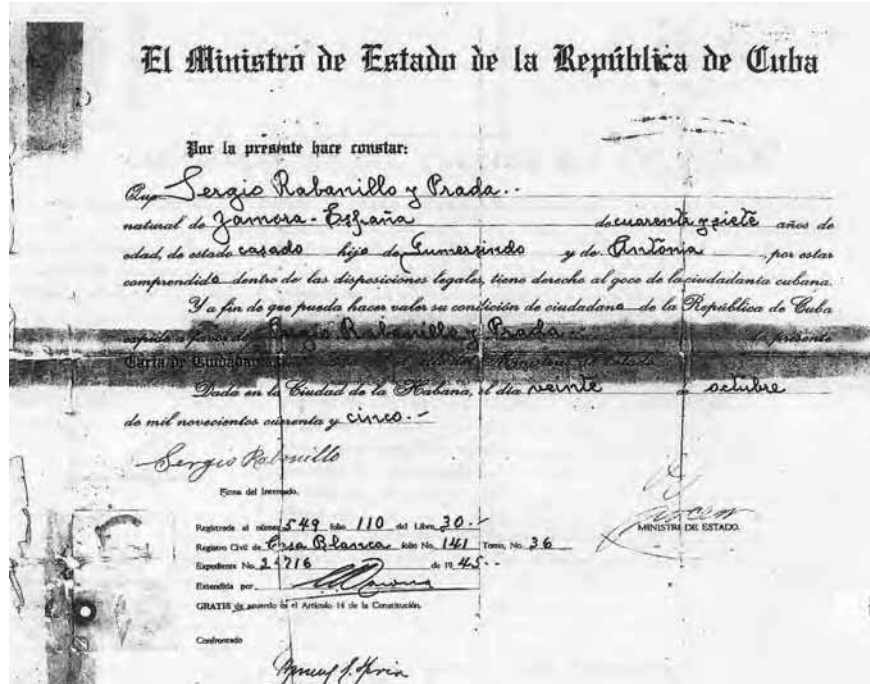 El Ministro de Estado de la República de Cuba
Por la presente hace constar:
Que Sergio Rabanillo y Prada.-
natural de Zamora - España de cuarenta y siete años de
edad, de estado casado hijo de Gumersindo y de Antonia, por estar
comprendido dentro de las disposiciones legales, tiene derecho al goce de la ciudadanía cubana.
Y a fin de que pueda hacer valer su condición de ciudadano de la República de Cuba
expide a favor de Sergio Rabanillo y Prada la presente
Carta de Ciudadanía Ministerio de Estado
Dada en la Ciudad de la Habana, el día veinte de octubre
de mil novecientos cuarenta y cinco.-
Sergio Rabanillo
Firma del Interesado.
MINISTRO DE ESTADO.
Registrada al número 549 folio 110 del Libro 30.-
Registro Civil de Casa Blanca folio No. 141 Tomo, No. 36
Expediente No. 2 716 de 19 45.-
Extendida por
GRATIS de acuerdo con el Artículo 14 de la Constitución.
Confrontado